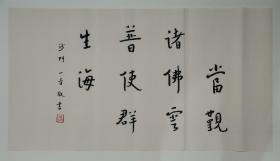 當觀
諸佛雲
普使群
生海
沙門一音敬書